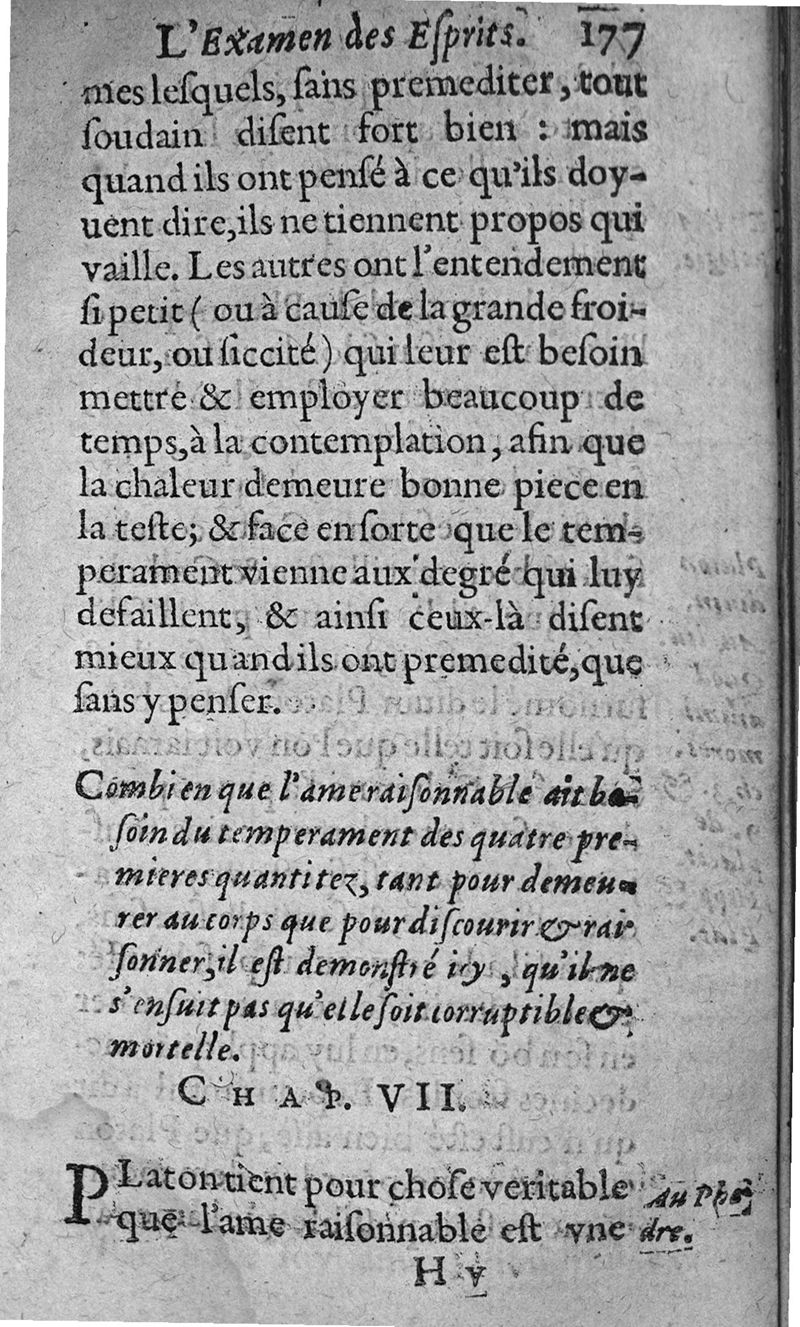 L'Examen des Eſprits. 177
mes leſquels, ſans premediter, tout
ſoudain diſent fort bien : mais
quand ils ont penſé à ce qu'ils doy-
uent dire, ils ne tiennent propos qui
vaille. Les autres ont l'entendement
ſi petit ( ou à cauſe de la grande froi-
deur, ou ſiccité ) qui leur eſt beſoin
mettre & employer beaucoup de
temps, à la contemplation, afin que
la chaleur demeure bonne piece en
la teſte; & face en ſorte que le tem-
perament vienne aux degré qui luy
defaillent, & ainſi ceux-là diſent
mieux quand ils ont premedité, que
ſans y penſer.
Combien que l'ame raiſonnable ait be-
ſoin du temperament des quatre pre-
mieres quantitez, tant pour demeu-
rer au corps que pour diſcourir & rai
ſonner, il eſt demonſtré icy, qu'il ne
s'enſuit pas qu'elle ſoit corruptible &
mortelle.
CHAP. VII.
PLaton tient pour choſe veritable Au Phę
que l'ame raiſonnable eſt vne dre.
H v